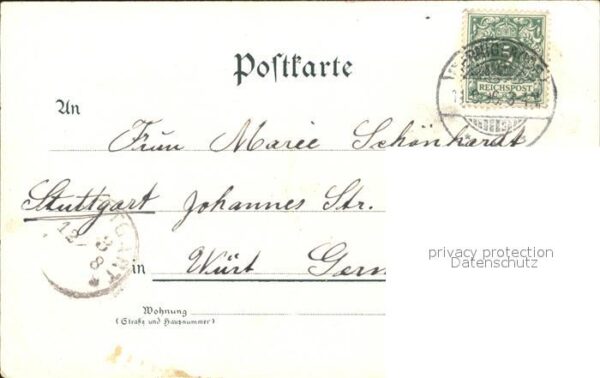 Postkarte
REICHSPOST
An
Frau Marie Schönhardt
Stuttgart Johannes Str.
privacy protection
Datenschutz
in Würt Germ
Wohnung
(Straße und Hausnummer)